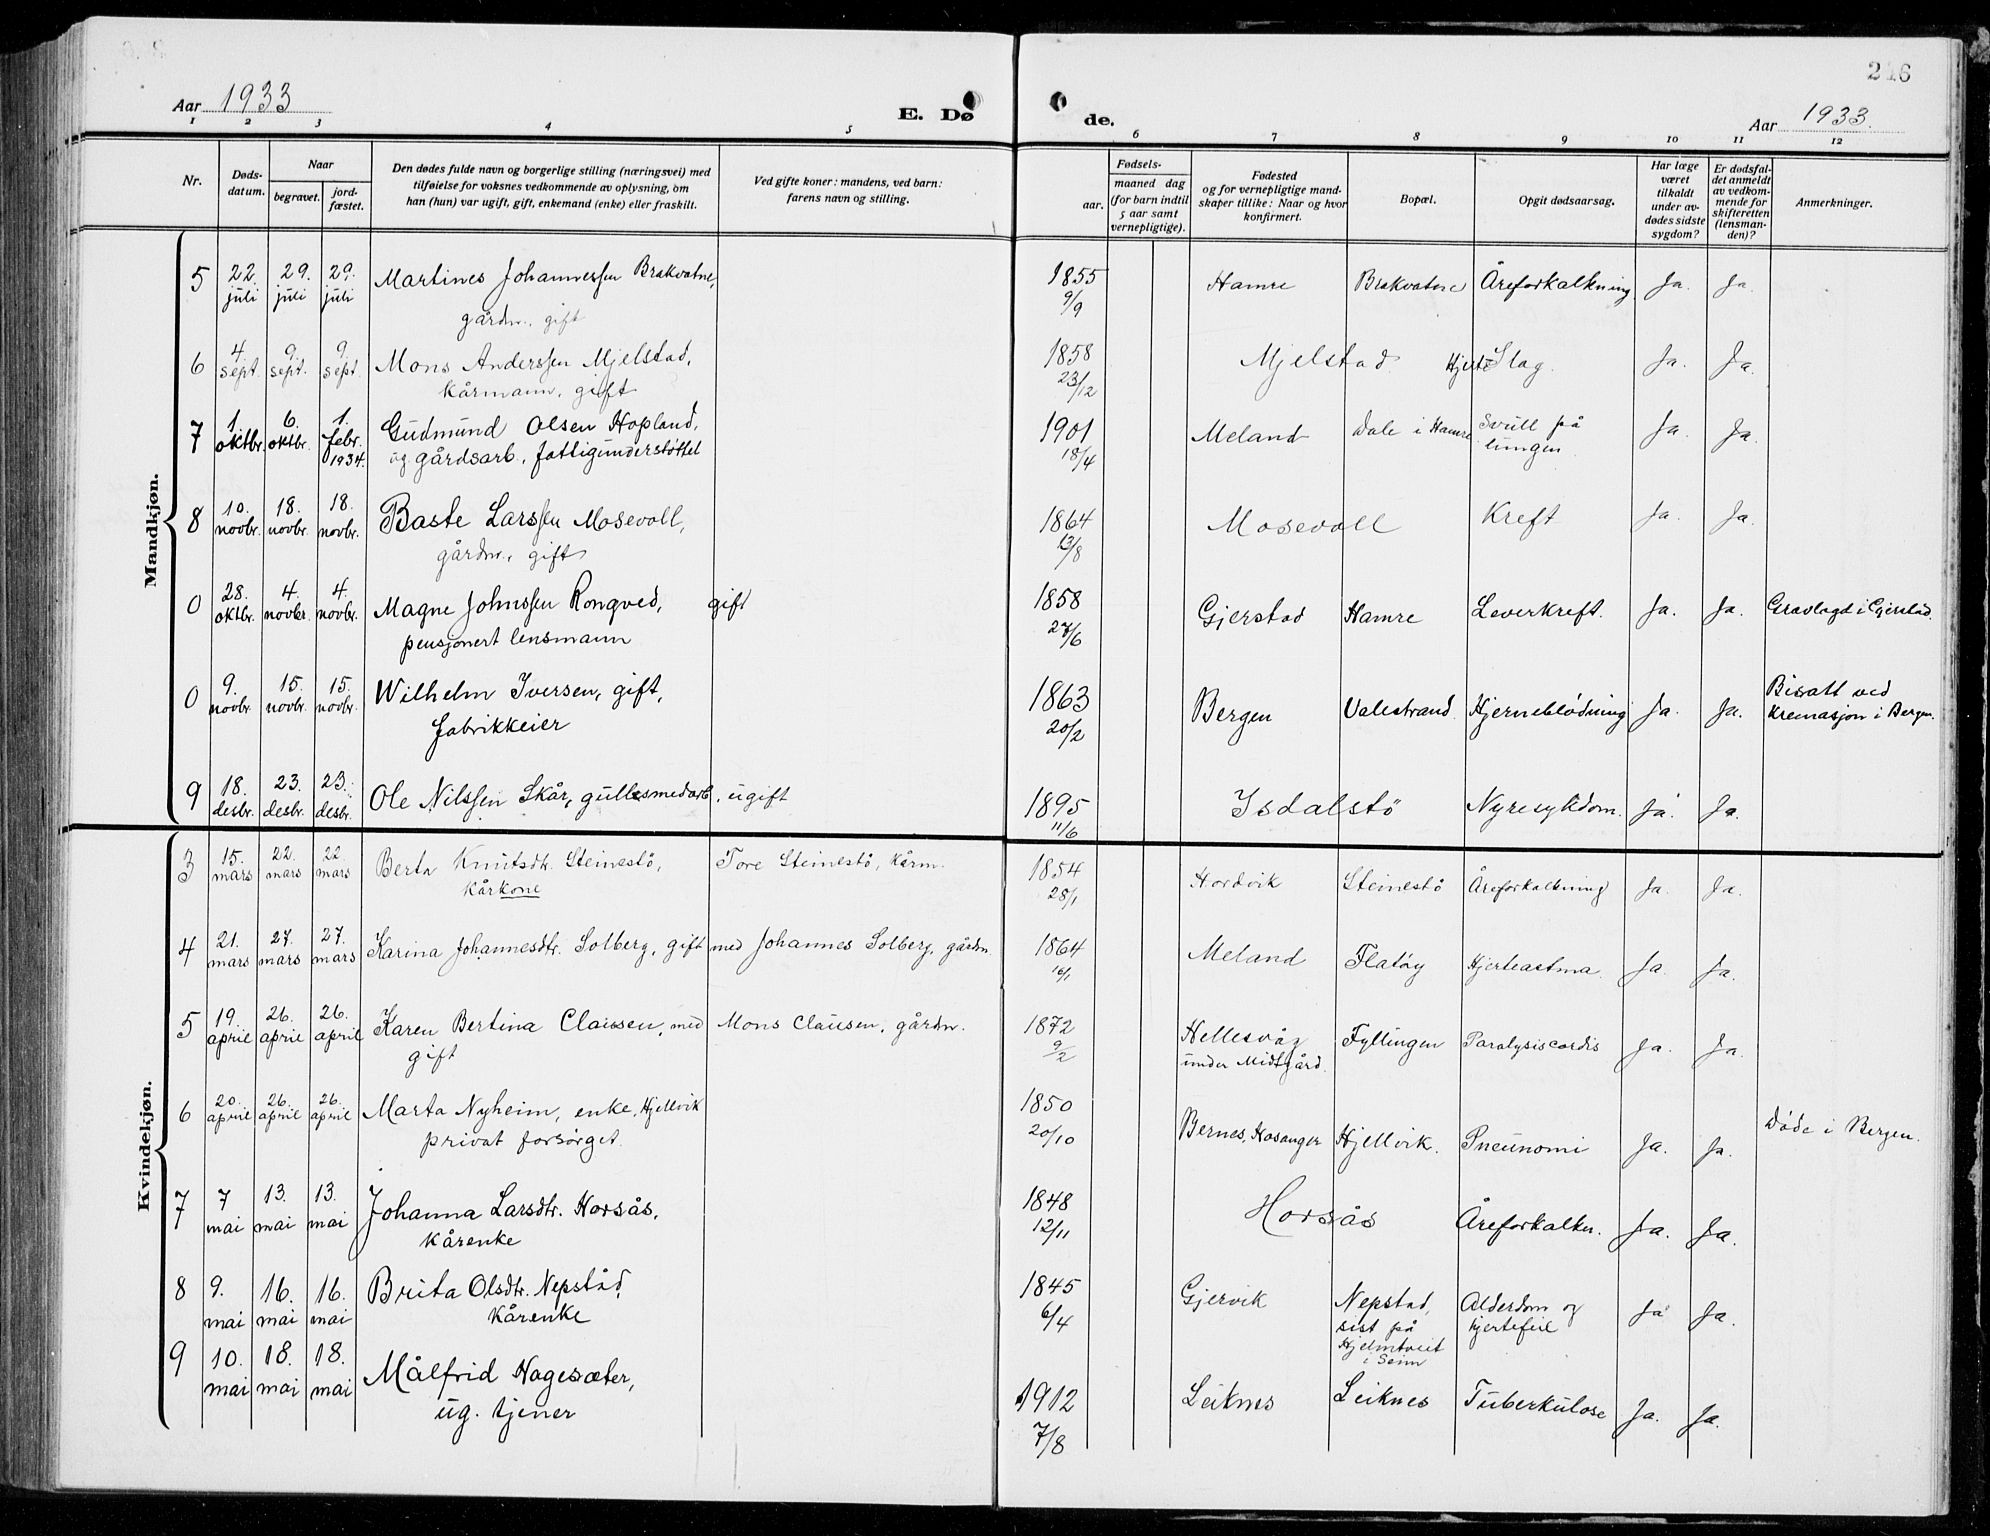 246
Aar 1933
E. Dø
de.
Aar 1933.
1 2 3 4 5 6 7 8 9 10 11 12
Nr.
Døds-
datum.
Naar
begravet.
jord-
fæstet.
Den dødes fulde navn og borgerlige stilling (næringsvei) med
tilføielse for voksnes vedkommende av oplysning, om
han (hun) var ugift, gift, enkemand (enke) eller fraskilt.
Ved gifte koner: mandens, ved barn:
farens navn og stilling.
Fødsels-
aar.
maaned dag
(for barn indtil
5 aar samt
vernepligtige).
Fødested
og for vernepligtige mand-
skaper tillike: Naar og hvor
konfirmert.
Bopæl.
Opgit dødsaarsag.
Har læge
været
tilkaldt
under av-
dødes sidste
sygdom?
Er dødsfal-
det anmeldt
av vedkom-
mende for
skifteretten
(lensman-
den)?
Anmerkninger.
Mandkjøn.
5 22. juli 29. juli 29. juli Martines Johannessen Brakvatne, 1855 Hamre Brakvatne Åreforkalkning Ja. Ja.
gårdm., gift 9/9
6 4 sept. 9. sept. 9. sept. Mons Anderssen Mjelstad, 1858 Mjelstad Hjerte Slag. Ja. Ja.
Kårmann, gift 23/12
7 1. oktbr. 6. oktbr. 1. febr. 1934. Gudmund Olsen Hopland, 1901 Meland Dale i Hamre Svull på Ja. Ja.
ug gårdsarb., fattigunderstøttet 18/4 lungen
8 10. novbr. 18. novbr. 18. novbr. Baste Larssen Mosevoll, 1864 Mosevoll Kreft Ja. Ja.
gårdm., gift 13/8
0 28. oktbr. 4. novbr. 4. novbr. Magne Johnssen Rongved, gift 1858 Gjerstad Hamre Leverkreft. Ja. Ja. Gravlagd i Gjerstad.
pensjonert lensmann 27/6
0 9. novbr. 15. novbr. 15. novbr. Wilhelm Iversen, gift, 1863 Bergen Valestrand. Hjerneblödning Ja. Ja. Bisatt ved
fabrikkeier 20/2 Kremasjon i Bergen.
9 18. desbr. 23. desbr. 23. desbr. Ole Nilssen Skår, gullsmedarb., ugift 1895 Isdalstö Nyresykdom. Ja. Ja.
11/6
Kvindekjøn.
3 15. mars 22. mars 22 mars Berta Knutsdtr. Steinestö, Tore Steinestö, kårm. 1854 Hordvik Steinestö Åreforkalkning Ja. Ja.
Kårkone 28/1
4 21. mars 27. mars 27. mars Karina Johannesdtr. Solberg, gift med Johannes Solberg, gårdm. 1864 Meland Flatöy Hjerteastma. Ja. Ja.
16/1
5 19. april 26. april 26. april Karen Bertina Clausen, med Mons Clausen, gårdm. 1872 Hellesvåg Fyllingen Paralysiscordis Ja. Ja.
gift 9/2 under Midtgård.
6 20. april 26. april 26. april Marta Nyheim, enke, Hjellvik 1850 Bernes, Hosanger Hjellvik. Pneunomi Ja. Ja. Döde i Bergen.
privat forsörget. 20/10
7 7 mai 13. mai 13. mai Johanna Larsdtr. Horsås, 1848 Horsås Åreforkalkn. Ja. Ja.
Kårenke 12/11
8 9. mai 16. mai 16. mai Brita Olsdtr. Nepstad, 1845 Gjervik Nepstad, Alderdom og Ja Ja.
Kårenke 6/4 sist på hjertefeil
Hjelmtveit
i Seim
9 10. mai 18. mai 18. mai Målfrid Hagesæter, 1912 Leiknes Leiknes Tuberkulose Ja. Ja.
ug. tjener 7/8